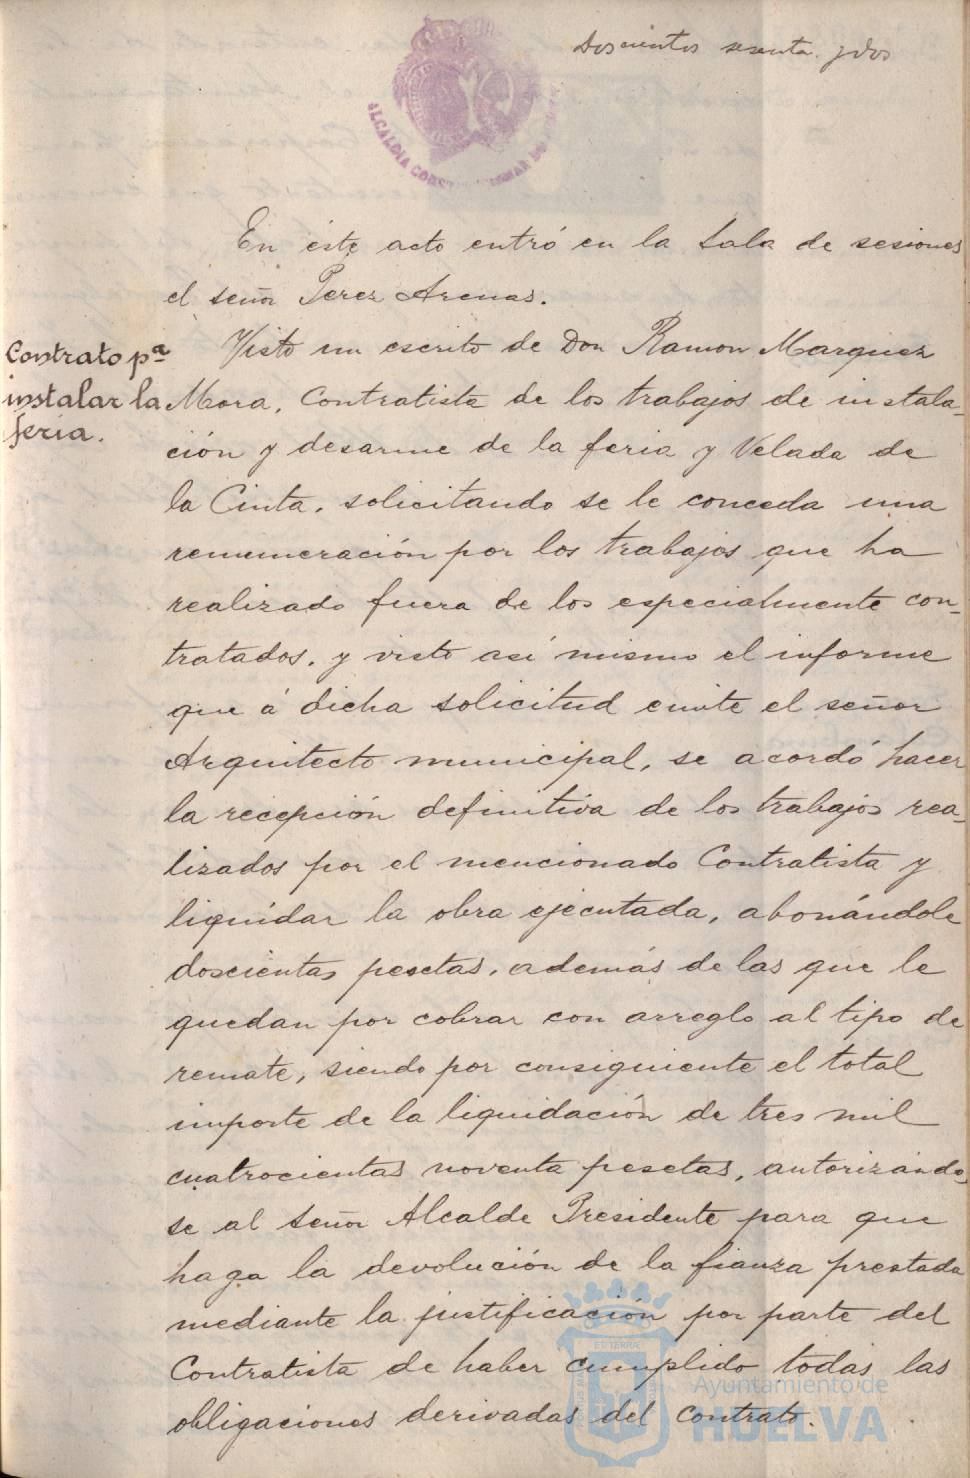 Doscientos sesenta y dos
ALCALDIA CONSTITUCIONAL DE
En este acto entró en la Sala de sesiones
el señor Perez Arenas.
Contrato pª
instalar la
feria.
Visto un escrito de Don Ramon Marquez
Mora, Contratista de los trabajos de instala-
ción y desarme de la feria y Velada de
la Cinta, solicitando se le conceda una
remuneración por los trabajos que ha
realizado fuera de los especialmente con-
tratados, y visto así mismo el informe
que á dicha solicitud emite el señor
Arquitecto municipal, se acordó hacer
la recepción definitiva de los trabajos rea-
lizados por el mencionado Contratista y
liquidar la obra ejecutada, abonándole
doscientas pesetas, además de las que le
quedan por cobrar con arreglo al tipo de
remate, siendo por consiguiente el total
importe de la liquidación de tres mil
cuatrocientas noventa pesetas, autorizándo-
se al Señor Alcalde Presidente para que
haga la devolución de la fianza prestada
mediante la justificación por parte del
Contratista de haber cumplido todas las
obligaciones derivadas del contrato.
Ayuntamiento de
HUELVA